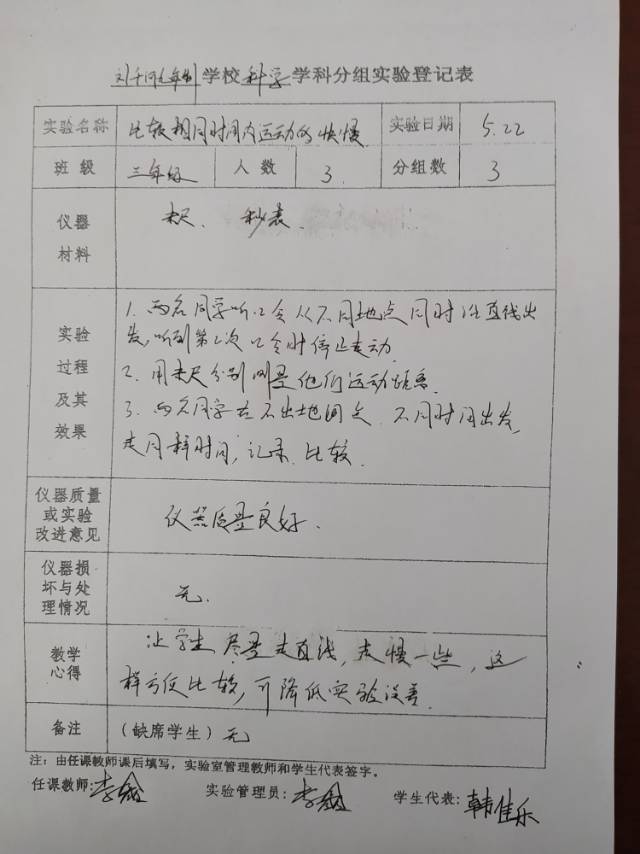 刘千河九年制学校科学学科分组实验登记表
实验名称 比较相同时间内运动的快慢 实验日期 5.22
班级 三年级 人数 3 分组数 3
仪器材料 米尺、秒表
实验过程及其效果
1. 两名同学听口令从不同地点同时沿直线出
发,听到第2次口令时停止走动
2. 用米尺分别测量他们运动距离
3. 两名同学在不 不同时间出发,
走同样时间,记录、比较
仪器质量或实验改进意见 仪器质量良好.
仪器损坏与处理情况 无.
教学心得
让学生尽量走直线,走慢一些,这
样方便比较,可降低实验误差.
备注 (缺席学生)无
注:由任课教师课后填写,实验室管理教师和学生代表签字。
任课教师:李 实验管理员:李 学生代表:韩佳乐